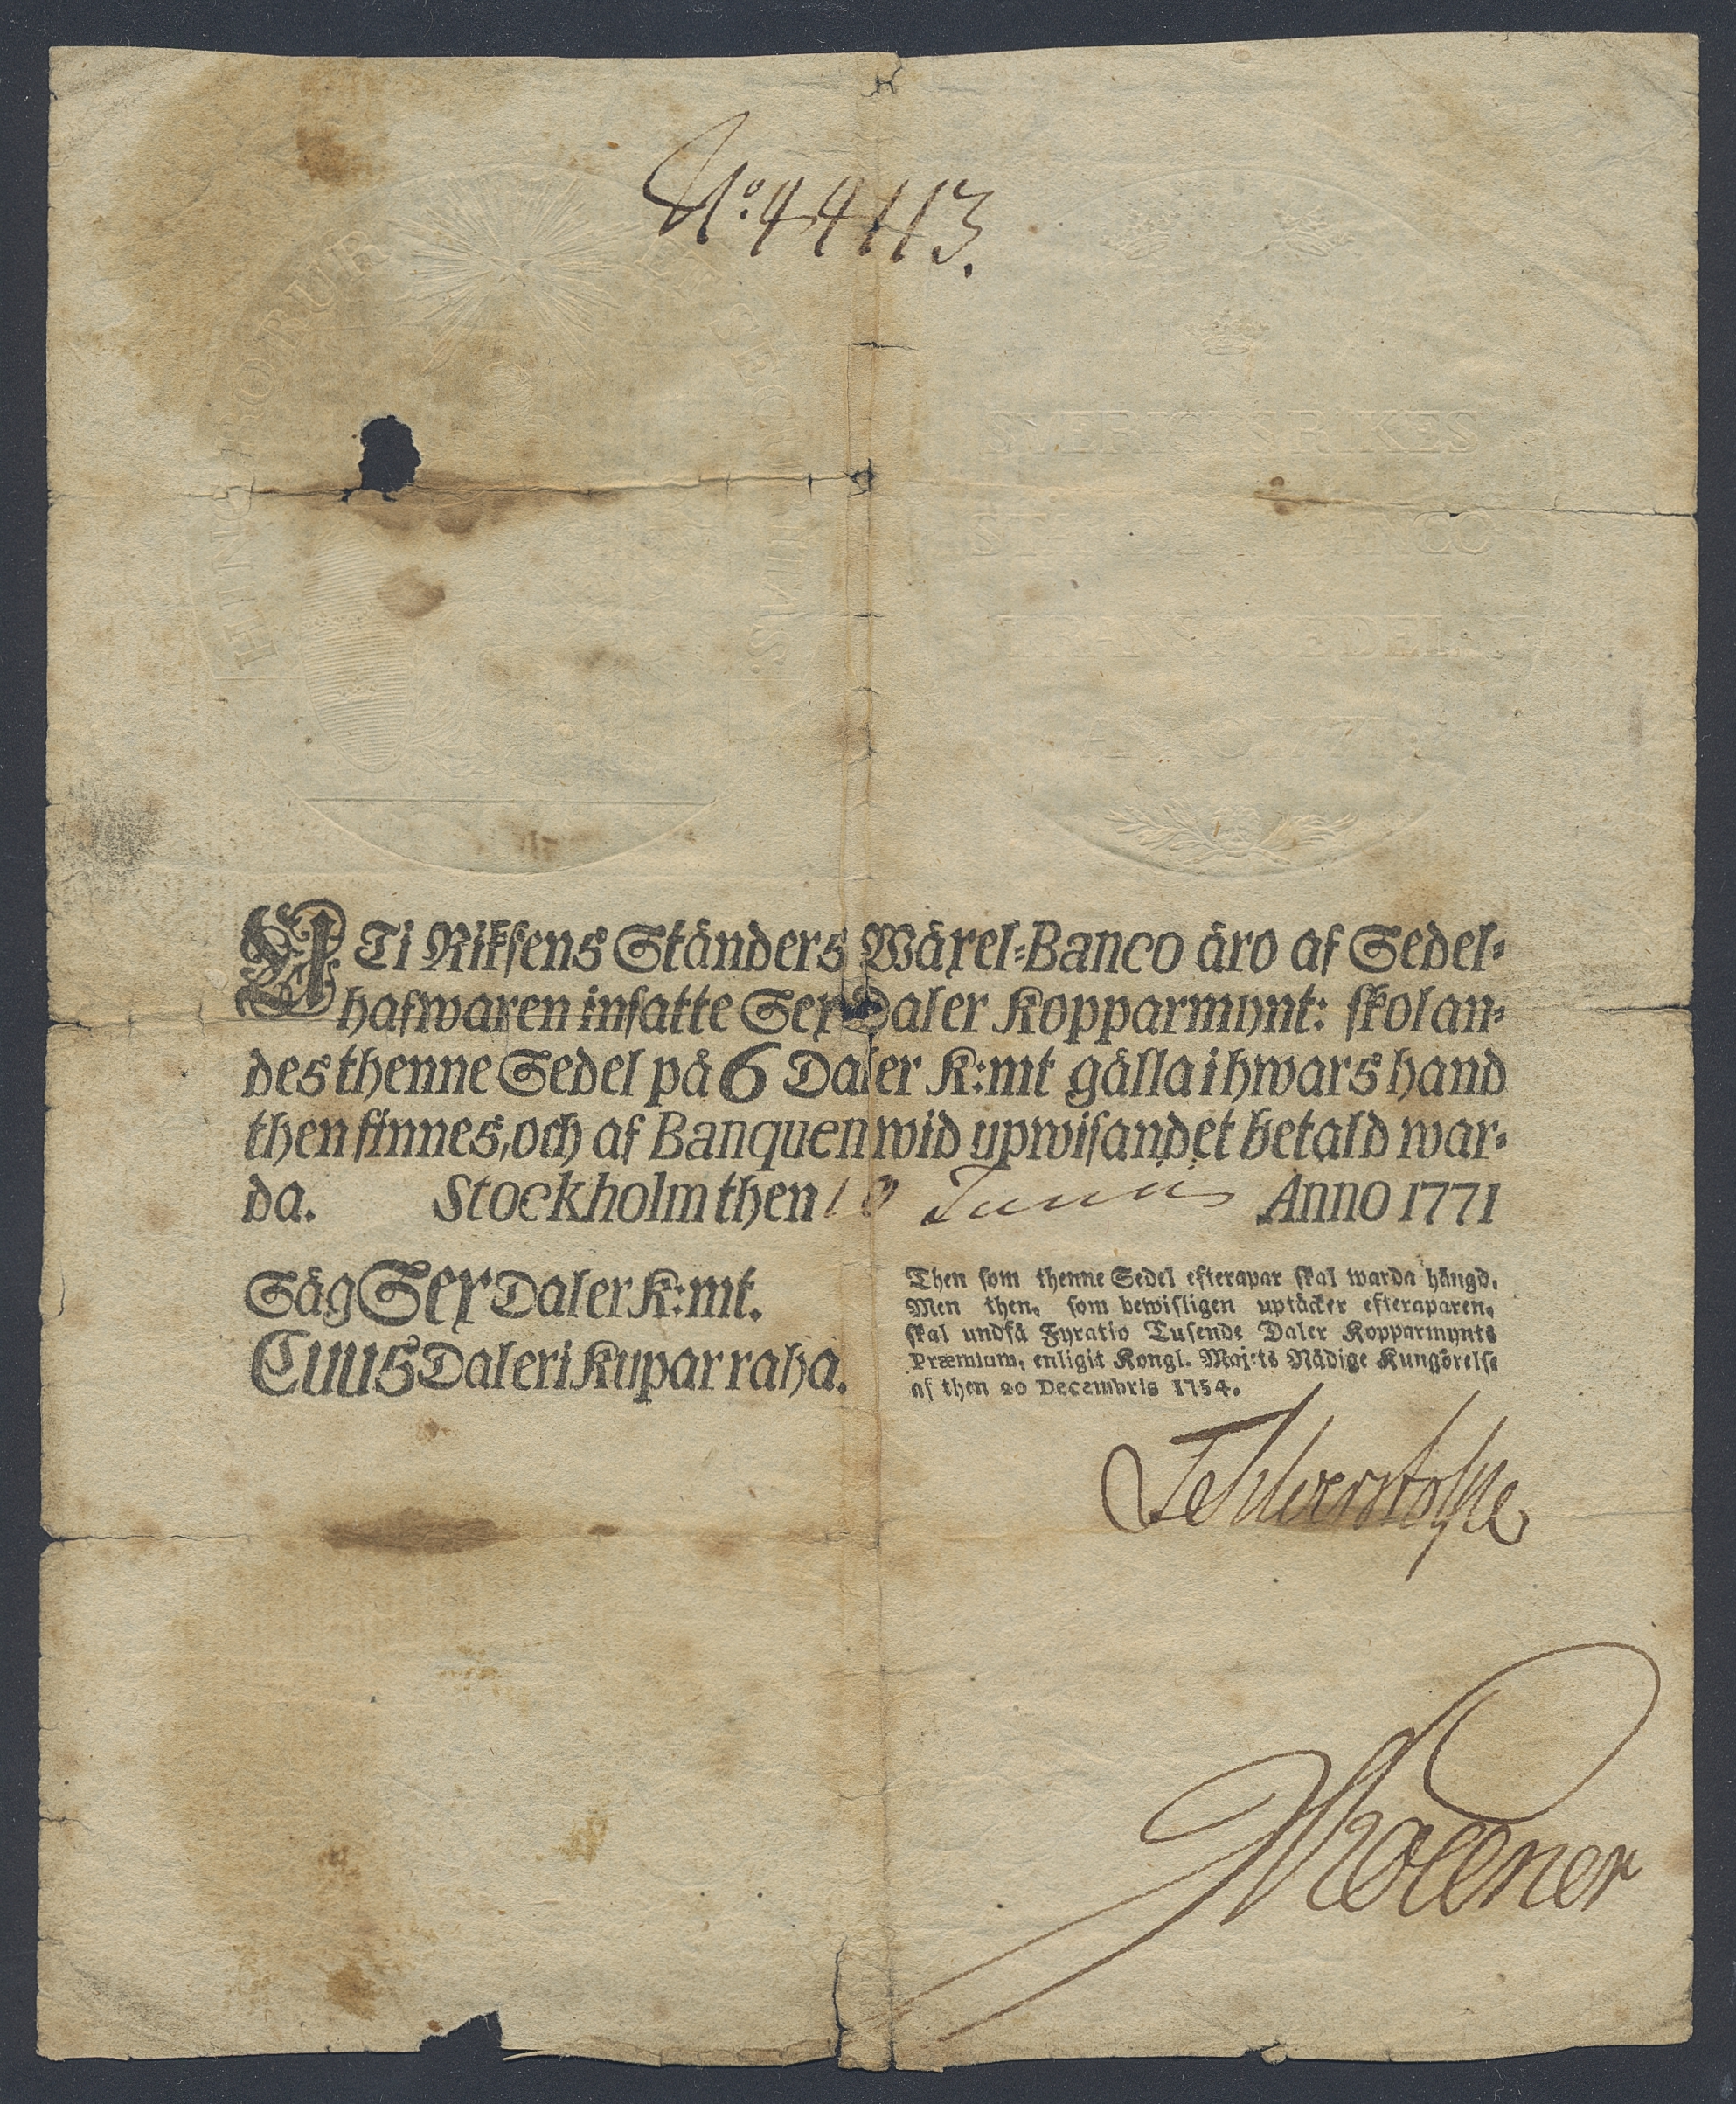 No. 44113.
HINC ROBUR ET SECURITAS.
SVERIGES RIKES
STÄNDERS BANCO
TRANSP. SEDEL.
ANNO 1771
UTi Riksens Ständers Wäxel-Banco äro af Sedel-
hafwaren insatte Sex Daler Kopparmynt: skolan-
des thenne Sedel på 6 Daler K:mt gälla i hwars hand
then finnes, och af Banquen wid upwisandet betald war-
da. Stockholm then 10 Junii Anno 1771
Säg Sex Daler K:mt.
Cuus Daleri Kupar raha.
Then som thenne Sedel efterapar skal warda hängd,
Men then, som bewisligen uptäcker efteraparen,
skal undfå Fyratio Tusende Daler Kopparmynts
Præmium, enligit Kongl. Maj:ts Nådige Kungörelse
af then 20 Decembris 1754.